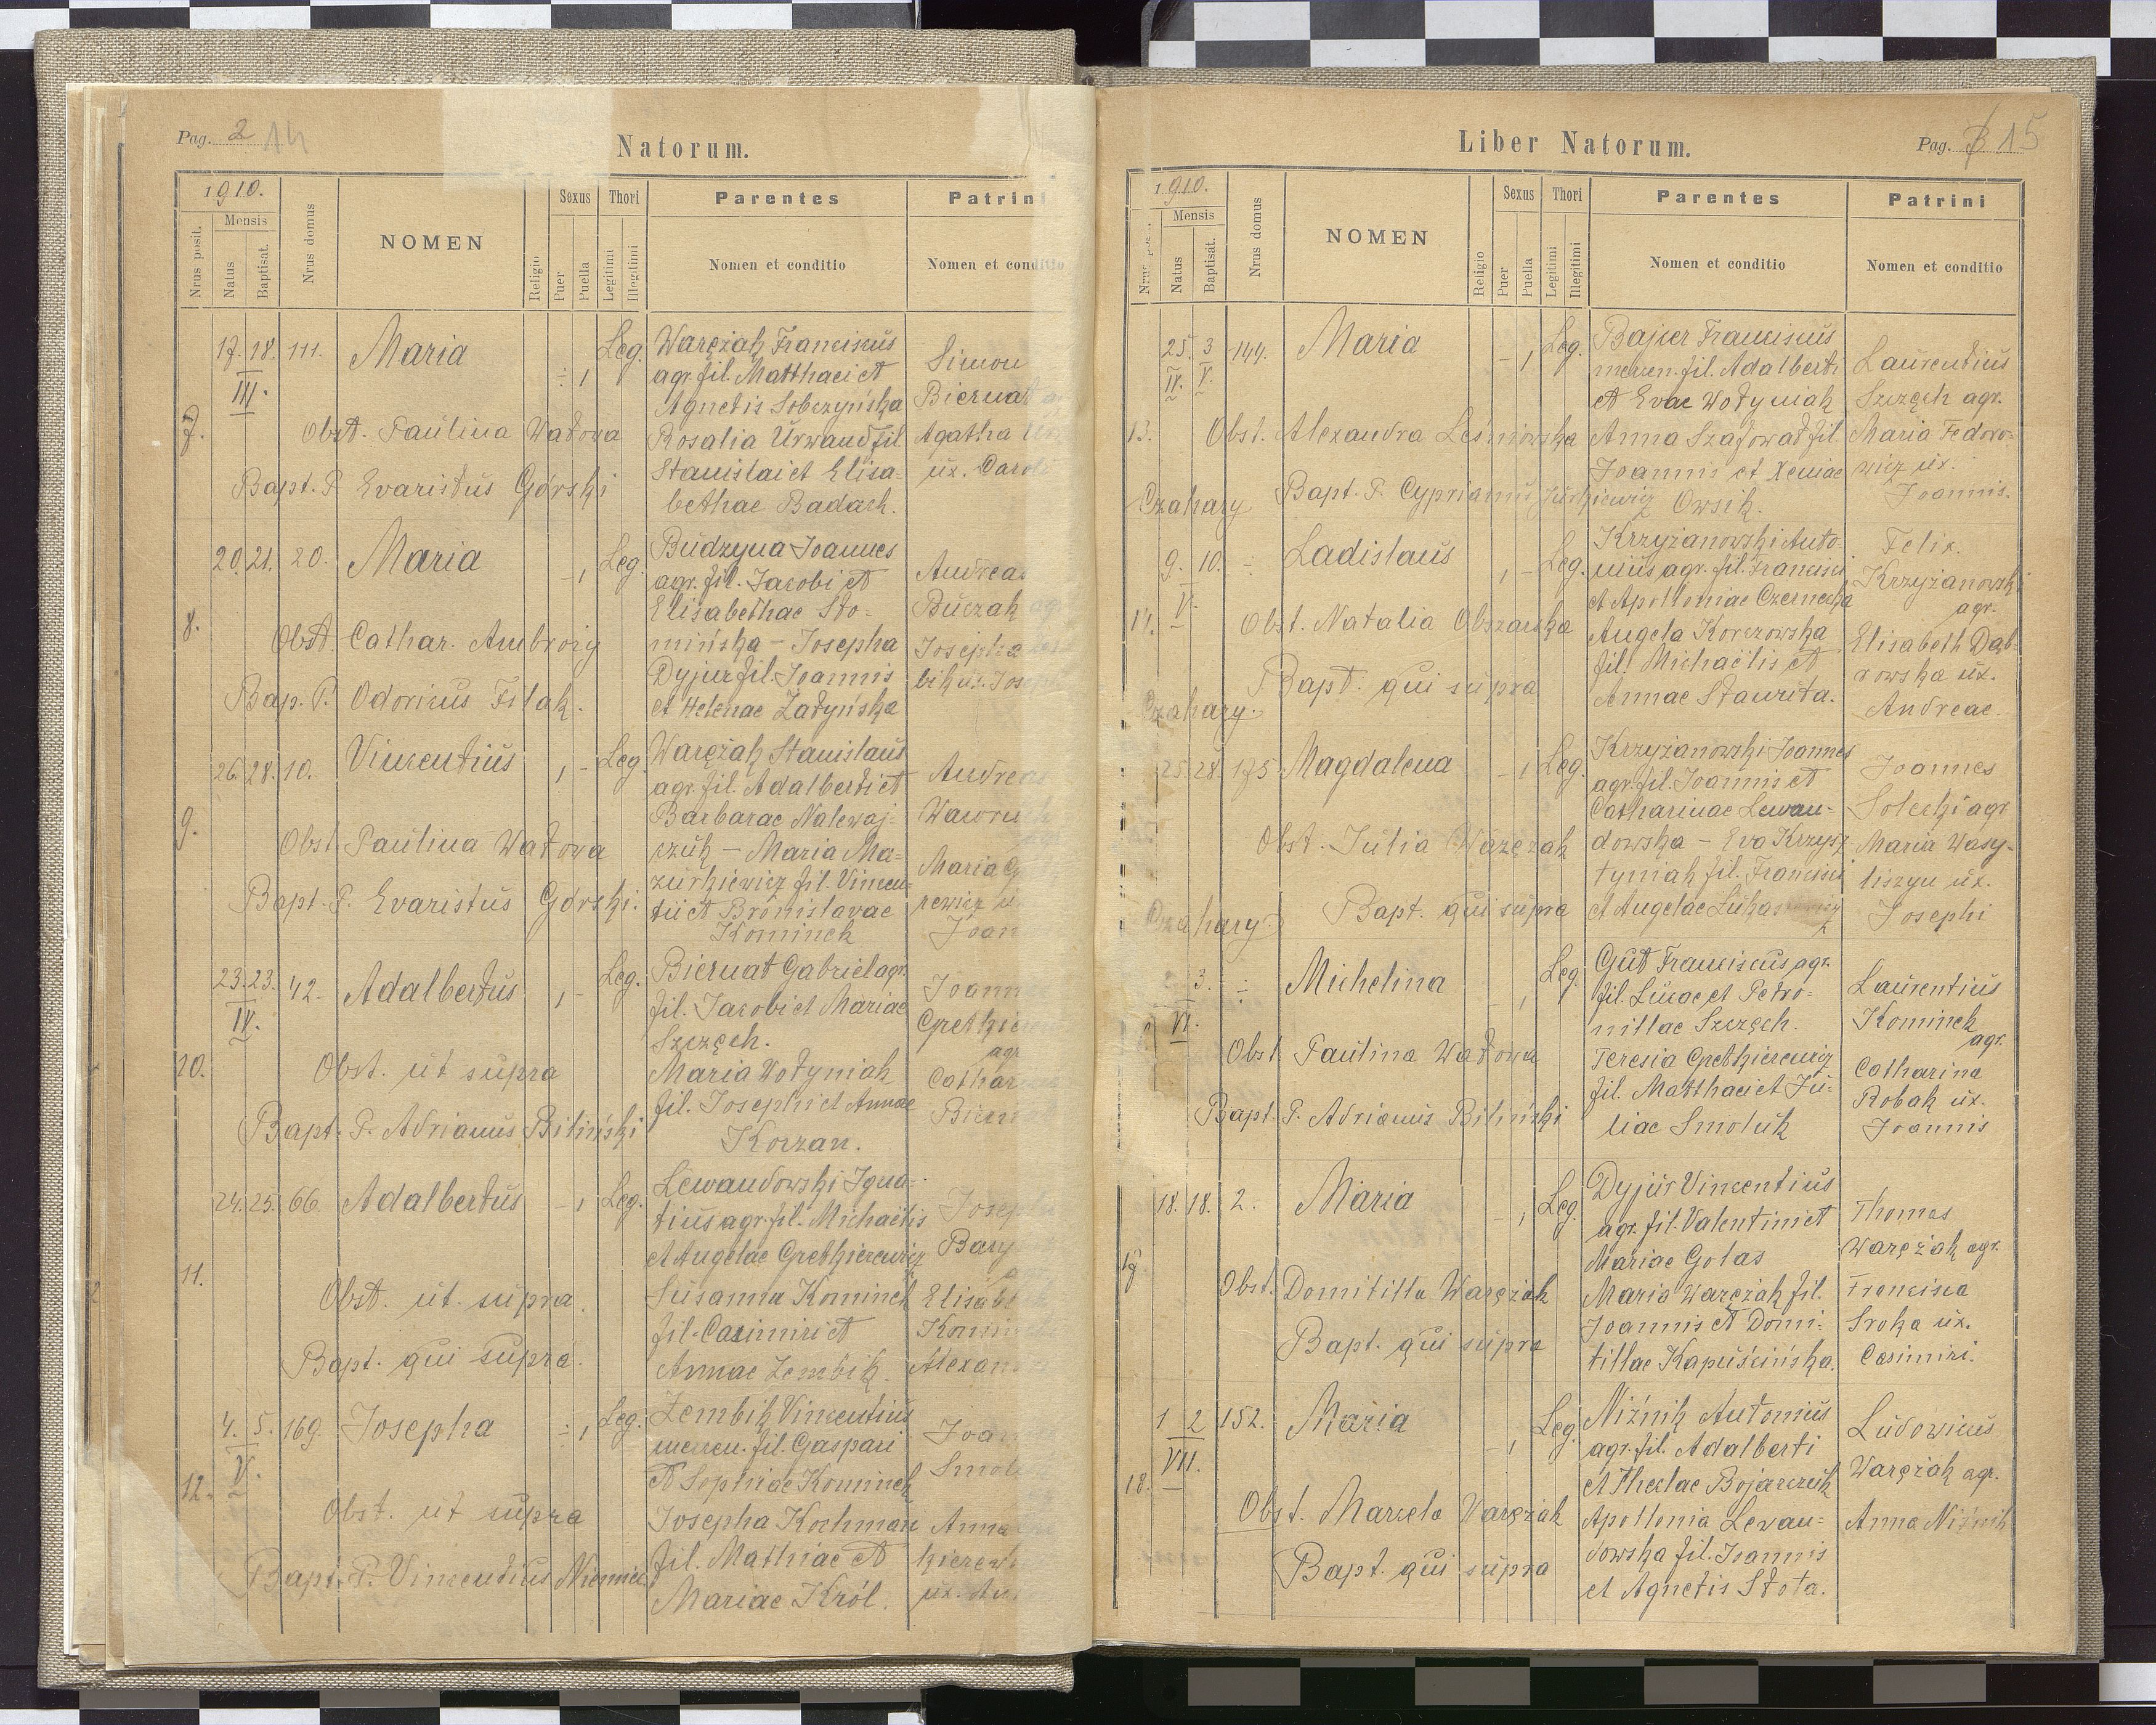 Pag. 2 14
Natorum.
1910.
Nrus posit.
Mensis
Natus
Baptisat.
Nrus domus
NOMEN
Religio
Sexus
Puer
Puella
Thori
Legitimi
Illegitimi
Parentes
Nomen et conditio
Patrini
Nomen et conditio
7.
17. 18. 111. Maria ÷ 1 Leg.
III.
Obst. Paulina Watowa
Bapt. P. Evaristus Górski
Warężak Franciscus
agr. fil. Matthaei et
Agnetis Sobczyńska
Rosalia Urwand fil.
Stanislai et Elisa-
bethae Badach.
Simon
Biernat
Agatha
ux. Caroli
8.
20. 21. 20. Maria - 1 Leg.
Obst. Cathar. Ambroży
Bap. P. Odoricus Filak.
Budzyna Joannes
agr. fil. Jacobi et
Elisabethae Sło-
mińska - Josepha
Dyjur fil. Joannis
et Helenae Zatyńska
Andreas
Buczak
Josepha
bik ux. Jos
9.
26. 28. 10. Vincentius 1 - Leg.
Obst. Paulina Watowa
Bapt. P. Evaristus Górski.
Warężak Stanislaus
agr. fil. Adalberti et
Barbarae Nalewaj-
czuk - Maria Ma-
zurkiewicz fil. Vincen-
tii et Bronislavae
Kominek
Andreas
Wawru
Maria G
rewicz u
Joan
10.
23. 23. 42. Adalbertus 1 - Leg.
IV.
Obst. ut supra
Bapt. P. Adrianus Biliński
Biernat Gabriel agr.
fil. Jacobi et Mariae
Szczęch.
Maria Wołyniak
fil. Josephi et Annae
Korzan.
Joann
Grethie
agr
Cathar
Biern
11.
24. 25. 66. Adalbertus - 1 Leg.
Obst. ut supra.
Bapt. qui supra.
Lewandowski Igna-
tius agr. fil. Michaëlis
et Angelae Grethierewicz
Susanna Kominek
fil. Casimiri et
Annae Zembik.
Joseph
Bary
Elisabe
Komin
Alexan
12.
4. 5. 169. Josepha ÷ 1 Leg.
V.
Obst. ut supra
Bapt. P. Vincentius Niemiec
Zembik Vincentius
mercen. fil. Gaspari
et Sophiae Kominek
Josepha Kochman
fil. Mathiae et
Mariae Król.
Joan
Smol
Anna
kierew
ux. An.
Liber Natorum.
Pag. 3 15
1910.
Mensis
Natus
Baptisat.
Nrus domus
NOMEN
Religio
Sexus
Puer
Puella
Thori
Legitimi
Illegitimi
Parentes
Nomen et conditio
Patrini
Nomen et conditio
13.
25. 3 144. Maria - 1 Leg.
IV. V.
Obst. Alexandra Leśniowska
Czahary Bapt. P. Cyprianus Jurkiewicz
Bajser Franciscus
mercen. fil. Adalberti
et Evae Wołyniak
Anna Szafował fil.
Joannis et Xeniae
Owsik.
Laurentius
Szczęch agr.
Maria Fedoro-
wicz ux.
Joannis.
14.
9. 10. ÷ Ladislaus 1 - Leg.
V.
Obst. Natalia Obszarska
Bapt. qui supra
Czahary.
Krzyżanowski Anto-
nius agr. fil. Francisci
et Apolloniae Czernecka
Angela Korczowska
fil. Michaëlis et
Annae Stawrita.
Felix.
Krzyżanowski
agr.
Elisabeth Dąb-
rowska ux.
Andreae.
25. 28. 175 Magdalena - 1 Leg.
Obst. Julia Warężak
Czahary Bapt. qui supra
Krzyżanowski Joannes
agr. fil. Joannis et
Catharinae Lewan-
dowska - Eva Krzysz-
tyniak fil. Francisci
et Angelae
Joannes
Solecki agr
Maria Wasy-
liszyn ux.
Josephi
3. ÷ Michelina - 1 Leg.
VI.
Obst. Paulina Watowa
Bapt. P. Adrianus Biliński
Gut Franciscus agr.
fil. Lucae et Petro-
nillae Szczęch.
Teresia Grethierewicz
fil. Matthaei et Ju-
liae Smoluk
Laurentius
Kominek
agr.
Catharina
Robak ux.
Joannis
17
18. 18. 2. Maria - 1 Leg.
Obst. Domitilla Warężak
Bapt. qui supra
Dyjur Vincentius
agr. fil. Valentini et
Mariae Golas
Maria Warężak fil.
Joannis et Domi-
tillae Kapuścińska.
Thomas
Warężak agr.
Francisca
Sroka ux.
Casimiri.
18.
1 2 152. Maria - 1 Leg.
VII.
Obst. Marcela Warężak
Bapt. qui supra
Niżnik Antonius
agr. fil. Adalberti
et Theclae Bojarczuk
Apollonia Lewan-
dowska fil. Joannis
et Agnetis Stota.
Ludovicus
Warężak agr.
Anna Niżnik